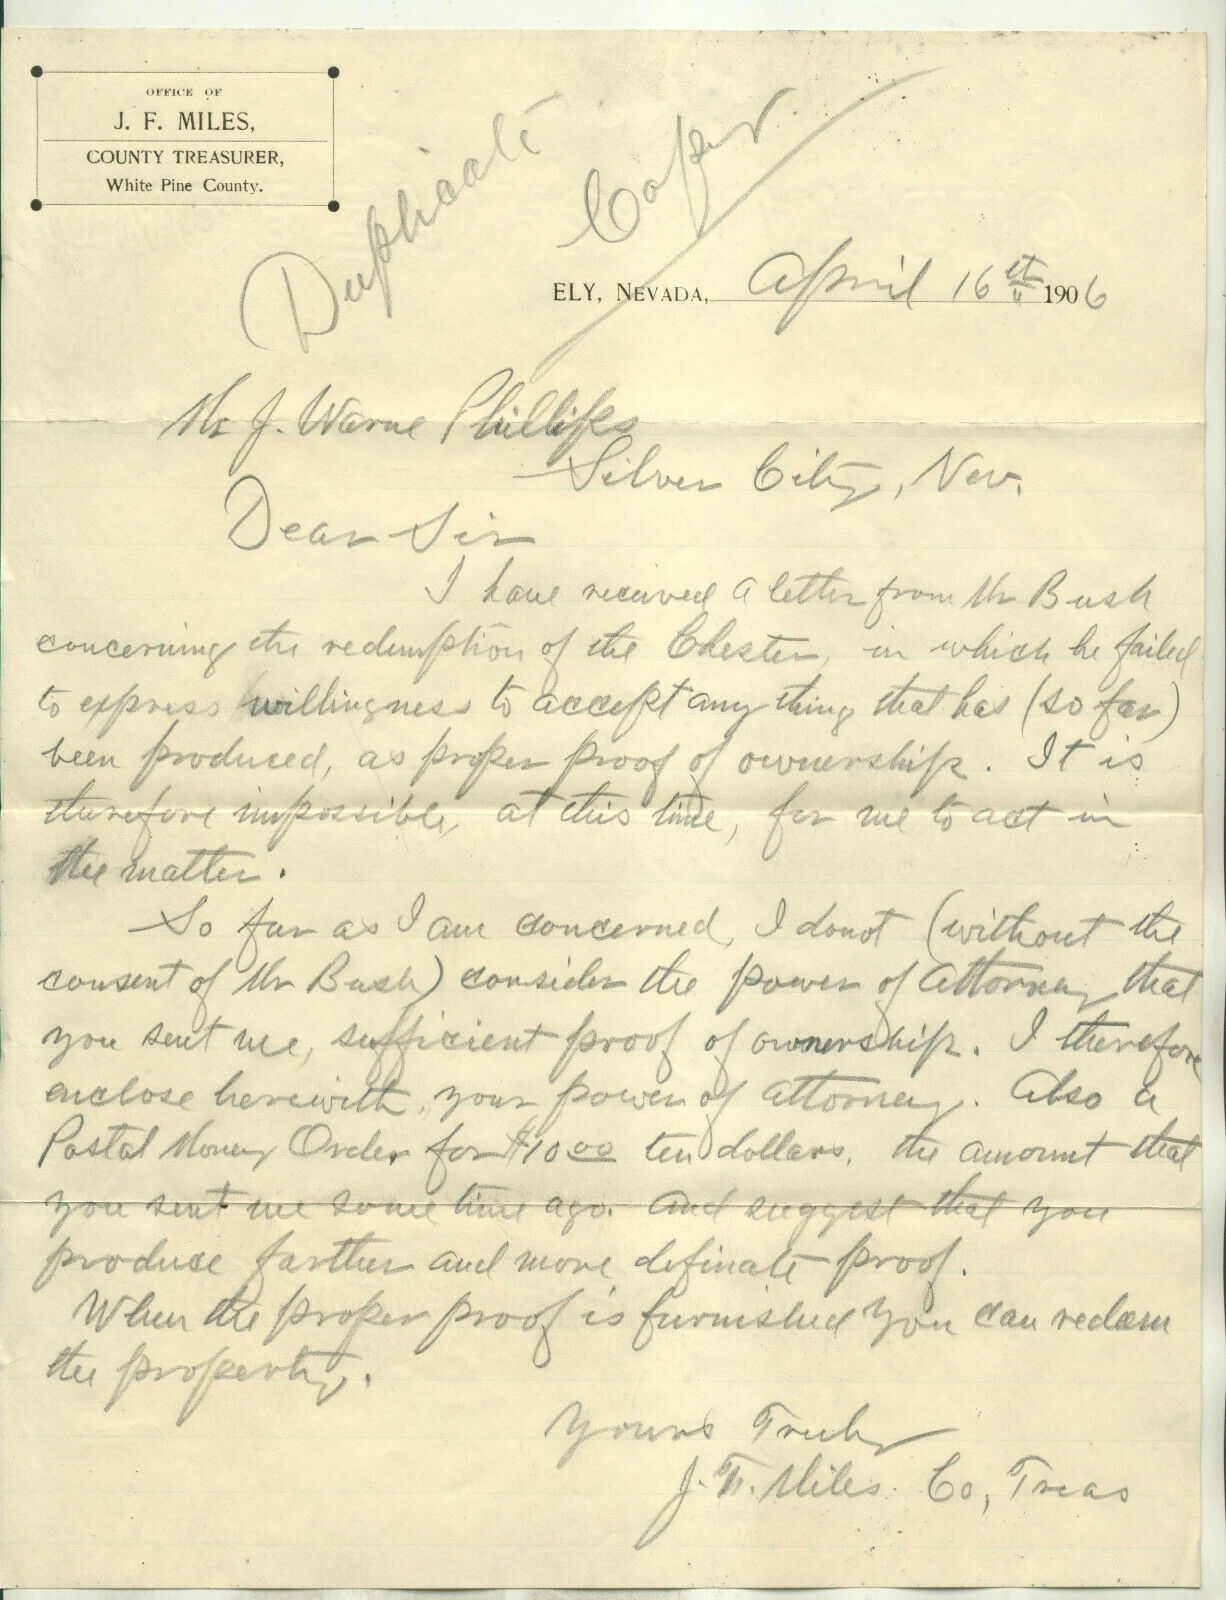 OFFICE OF
J. F. MILES,
COUNTY TREASURER,
White Pine County.
Duplicate Copy
ELY, NEVADA, April 16th 1906
Mr J. Warne Phillips
Silver City, Nev.
Dear Sir
I have received a letter from Mr Bush
concerning the redemption of the Chester, in which he failed
to express willingness to accept any thing that has (so far)
been produced, as proper proof of ownership. It is
therefore impossible, at this time, for me to act in
the matter.
So far as I am concerned, I do not (without the
consent of Mr Bush) consider the power of attorney that
you sent me, sufficient proof of ownership. I therefore
enclose herewith, your power of attorney. Also a
Postal Money Order for $10 00 ten dollars, the amount that
you sent me some time ago. And suggest that you
produce farther and more definate proof.
When the proper proof is furnished you can redeem
the property.
Yours Truly
J. F. Miles. Co, Treas